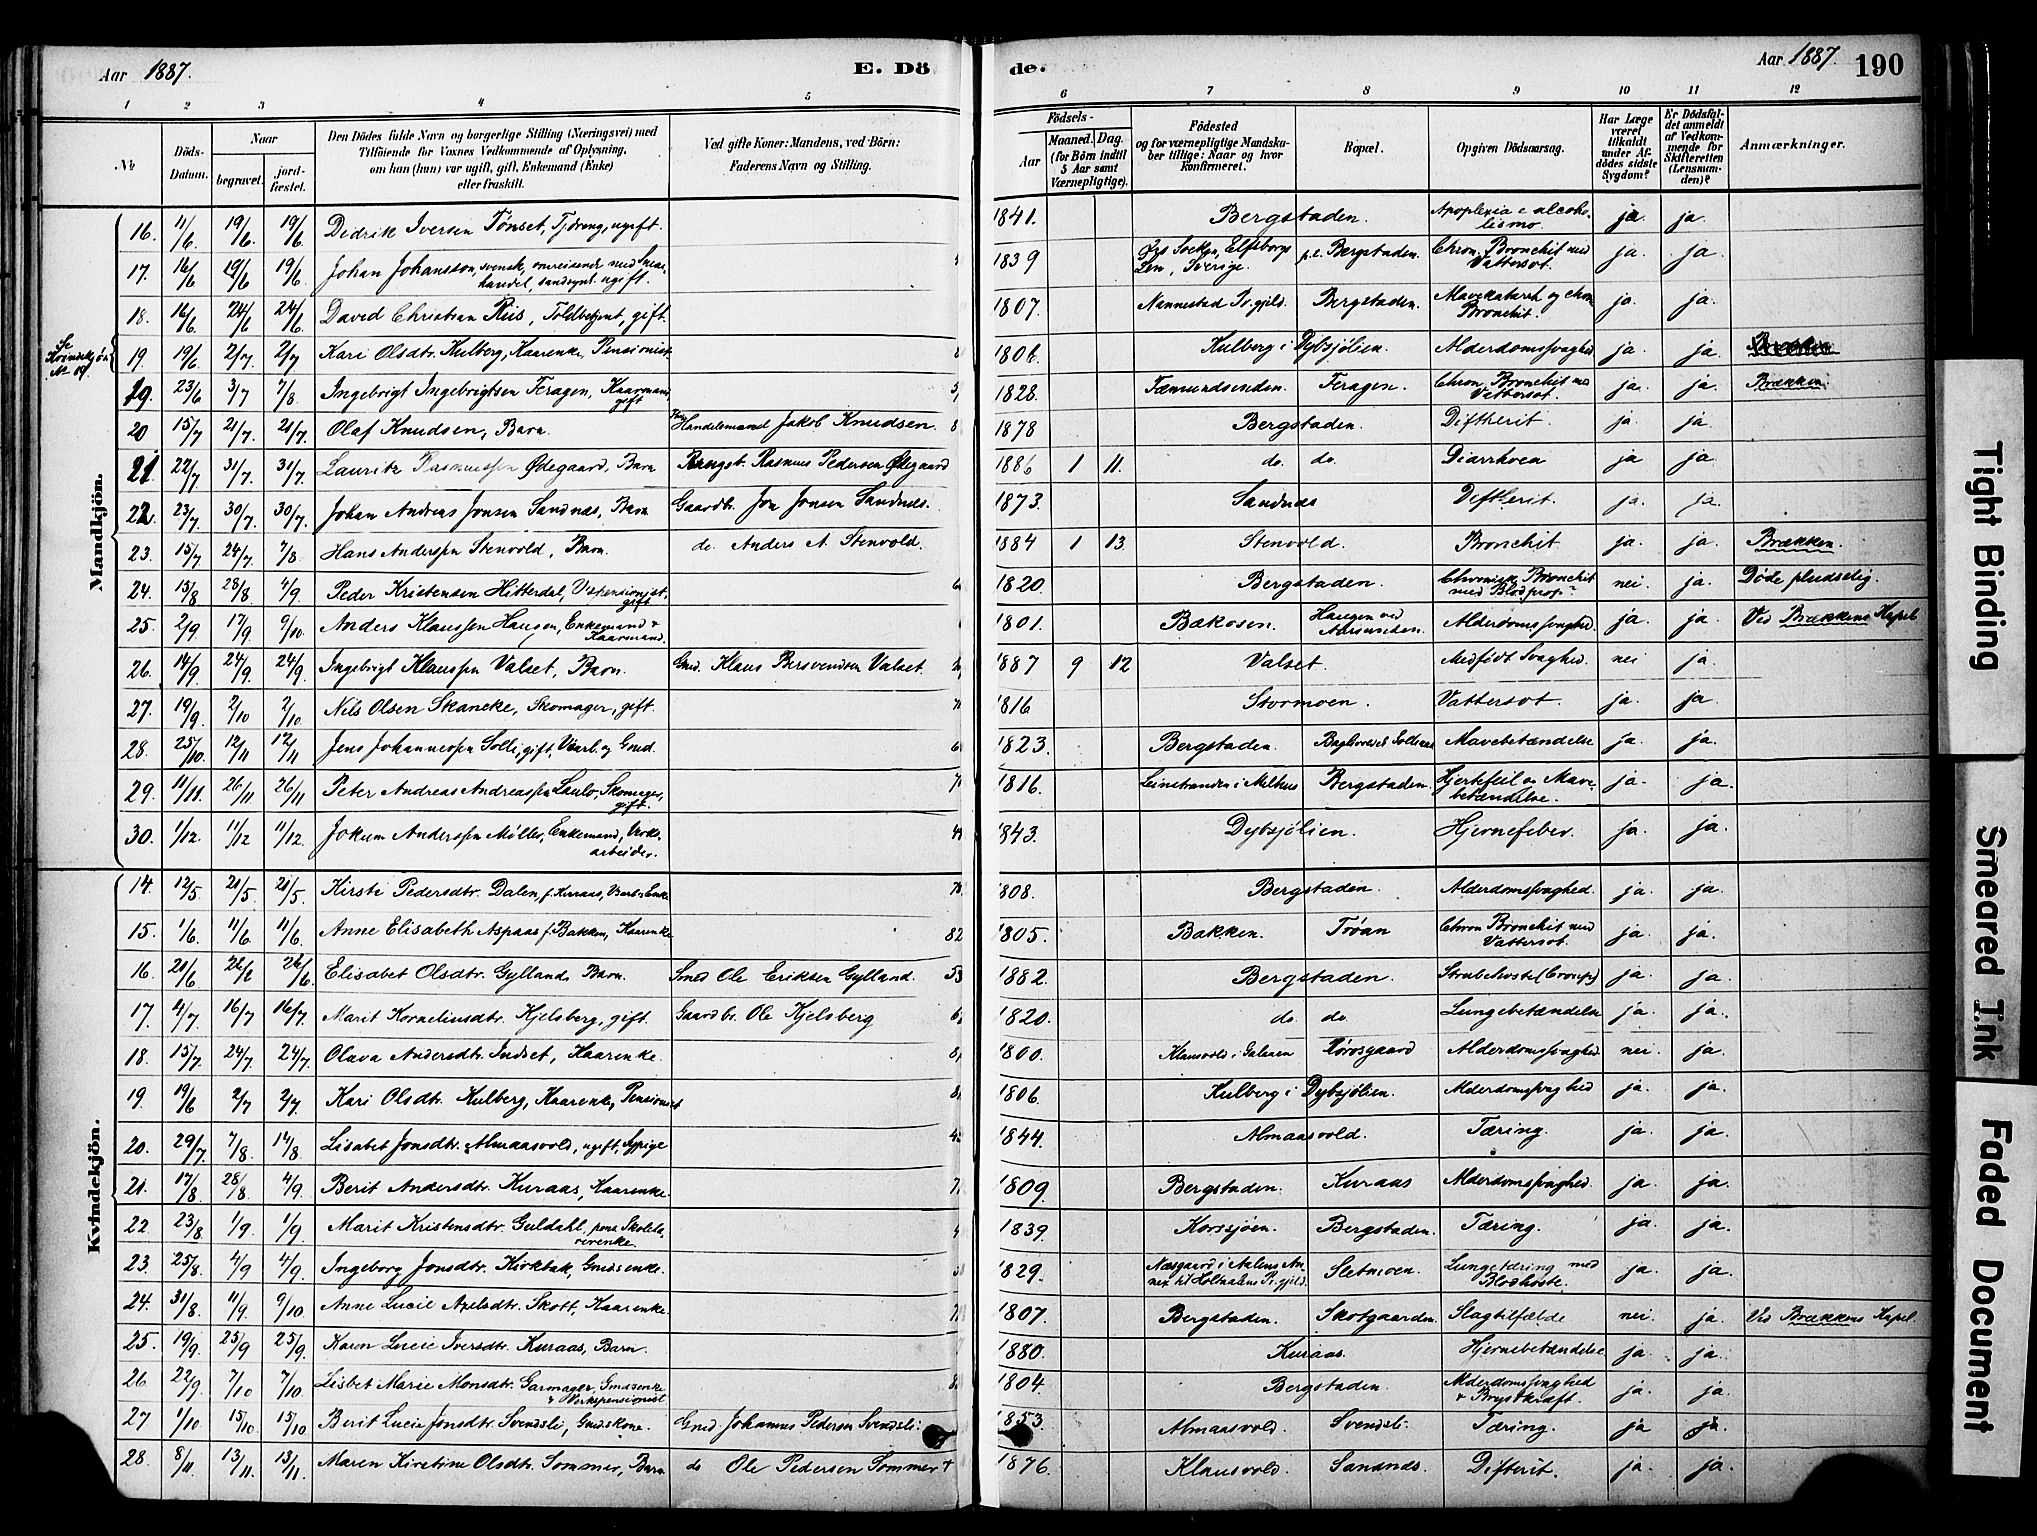 Aar 1887.
E. Dö
de.
Aar 1887.
190
1 2 3 4 5 6 7 8 9 10 11 12
No
Döds-Datum.
Naar
begravet.
jord-fæstet.
Den Dödes fulde Navn og borgerlige Stilling (Næringsvei) med
Tilföiende for Voxnes Vedkommende af Oplysning,
om han (hun) var ugift, gift, Enkemand (Enke)
eller fraskilt.
Ved gifte Koner: Mandens, ved Börn:
Faderens Navn og Stilling.
Födsels-
Aar
Maaned.
Dag.
(for Börn indtil
5 Aar samt
Værnepligtige).
Födested
og for værnepligtige Mandska-
ber tillige: Naar og hvor
konfirmeret.
Bopæl.
Opgiven Dödsaarsag.
Har Læge
været
tilkaldt
under Af-
dödes sidste
Sygdom?
Er Dödsfal-
det anmeldt
af Vedkom-
mende for
Skifteretten
(Lensman-
den)?
Anmærkninger.
Mandkjön.
16. 11/6 19/6. 19/6. Didrik Iversen Tønset, ugift. 1841. Bergstaden. Apoplexia e alcoholismo. ja ja.
17. 16/6 19/6 19/6 Johan Johansson, svensk, omreisende med handel, ugift. 1839 Elfsborgs Len, Sverige. p.t. Bergstaden. Chron. Bronchit med Vattersot. ja. ja.
18. 16/6. 24/6 24/6 David Christian Riis, Toldbetjent, gift. 1807. Nannestad Pr.gjeld. Bergstaden. Mavekatarrh og chron Bronchit. ja. ja.
Se Kvindekjøn No 19.
19. 19/6 2/7 2/7 Kari Olsdtr. Kulberg, Kaarenke, Pensionist 1806. Kulberg i Dybsjølien. Alderdomssvaghed ja. ja
19. 23/6 3/7 7/8 Ingebrigt Ingebrigtsen Feragen, Kaarmand, gift 1828. Fæmundsenden. Feragen. Chron. Bronchit med Vattersot. ja. ja. Brækken
20 15/7 21/7. 21/7. Olaf Knudsen, Barn Handelsmand Jakob Knudsen. 1878 Bergstaden. Diftherit. ja. ja.
21. 22/7 31/7. 31/7. Lauritz Rasmussen Ødegaard, Barn Rasmus Pedersen Ødegaard 1886 1 11. do. do. Diarrhoea ja ja.
22. 23/7. 30/7. 30/7. Johan Andreas Jonsen Sandnæs, Barn Gaardbr. Jon Jonsen Sandnæs. 1873. Sandnæs Diftherit. ja. ja.
23. 15/7 24/7 7/8 Hans Anderssen Stenvold, Barn. do. Anders A. Stenvold. 1884 1 13. Stenvold. Bronchit ja. ja. Brækken.
24. 15/8 28/8. 4/9. Peder Kristensen Hitterdal, gift 1820. Bergstaden. Chronisk Bronchit med Blodprop? nei. ja. Døde pludselig.
25. 2/9. 17/9. 9/10. Anders Klaussen Haugen, Enkemand & Kaarmand. 1801. Bakosen. Haugen ved Aursunden. Alderdomssvaghed. ja. ja. Ved Brækkens Kapel
26. 14/9. 24/9. 24/9. Ingebrigt Klaussen Valset, Barn. Gmd. Klaus Bersvendsen Valset 1887 9 12 Valset. Medfødt Svaghed. nei ja.
27. 19/9. 2/10 2/10 Nils Olsen Skancke, Skomager, gift. 1816 Stormoen. Vattersot. ja. ja.
28. 25/10. 12/11 12/11 Jens Johannessen Solli, gift, Værkarb. og Gmd. 1823. Bergstaden. Mavebetændelse ja. ja.
29. 11/11. 26/11 26/11 Peter Andreas Andreassen Laulo, Skomager, gift. 1816. Leinstranden i Melhus Bergstaden. Hjertefeil og Mavebetændelse. ja. ja.
30. 1/12. 11/12 11/12. Jokum Anderssen Møller, Enkemand, Verksarbeider. 1843. Dybsjølien. Hjernefeber. ja. ja.
Kvindekjön.
14. 12/5. 21/5. 21/5. Kirsti Pedersdtr. Dalen, f. Kuraas, Enke 1808. Bergstaden. Alderdomssvaghed. ja. ja.
15. 1/6. 11/6. 11/6. Anne Elisabeth Aspaas f. Bakken, Kaarenke 82 1805. Bakken. Tøan Chron Bronchit med Vattersot. ja. ja.
16 21/6 26/6 26/6. Elisabet Olsdtr. Gylland, Barn. Smed Ole Eriksen Gylland. 1882. Bergstaden Strubehoste (Croup) ja. ja.
17. 4/7 16/7 16/7 Marit Korneliusdtr. Kjelsberg, gift. Gaardbr. Ole Kjelsberg 1820. do do. Lungebetændelse ja. ja.
18. 15/7. 24/7 24/7 Olava Andersdtr. Indset, Kaarenke. 1800. Klausvold i Galaaen Rørosgaard Alderdomssvaghed nei. ja.
19. 19/6 2/7 2/7 Kari Olsdtr. Kulberg, Kaarenke, Pensionist 1806. Kulberg i Dybsjølien. Alderdomssvaghed ja. ja.
20. 29/7. 7/8. 14/8. Lisabet Jonsdtr. Almaasvold, ugift, Sypige 1844. Almaasvold. Tæring. ja. ja.
21. 17/8 28/8. 4/9. Berit Andersdtr. Kuraas, Kaarenke. 1809. Bergstaden. Kuraas Alderdomssvaghed. ja. ja.
22 23/8 1/9. 1/9 Marit Kristensdtr. Guldahl, Skolelærerenke. 1839 Korssjøen. Bergstaden. Tæring. ja. ja.
23. 25/8. 4/9 4/9. Ingeborg Jonsdtr. Kirkbak, Gmdsenke. 1829. Næsgaard i Aalens Annex til Holtaalens Pr.gjeld. Sletmoen. Lungetæring med Blodhoste. ja. ja.
24. 31/8. 11/9 9/10. Anne Lucie Axelsdtr. Skott, Kaarenke. 1807. Bergstaden. Skotgaarden. Slagtilfælde nei. ja. Ved Brækkens Kapel.
25. 19/9. 25/9 25/9. Karen Lucie Iversdtr. Kuraas, Barn. 1880. Kuraas. Hjernebetændelse ja. ja.
26 22/9. 7/10 7/10. Lisbet Marie Monsdtr. Garmager, Gmdsenke & Verkspensionist 1804. Bergstaden. Alderdomssvaghed & Brystkræft. ja. ja.
27 1/10 15/10. 15/10. Berit Lucie Jonsdtr. Svendsli, Gmdskone. Gmd. Johannes Pedersen Svendsli. 1853. Almaasvold. Svendsli. Tæring. ja ja.
28. 8/11 13/11. 13/11. Maren Kirstine Olsdtr. Sommer, Barn do Ole Pedersen Sommer 1876. Klausvold. Sandnæs. Difterit. ja. ja.
Tight Binding
Smeared Ink
Faded Document